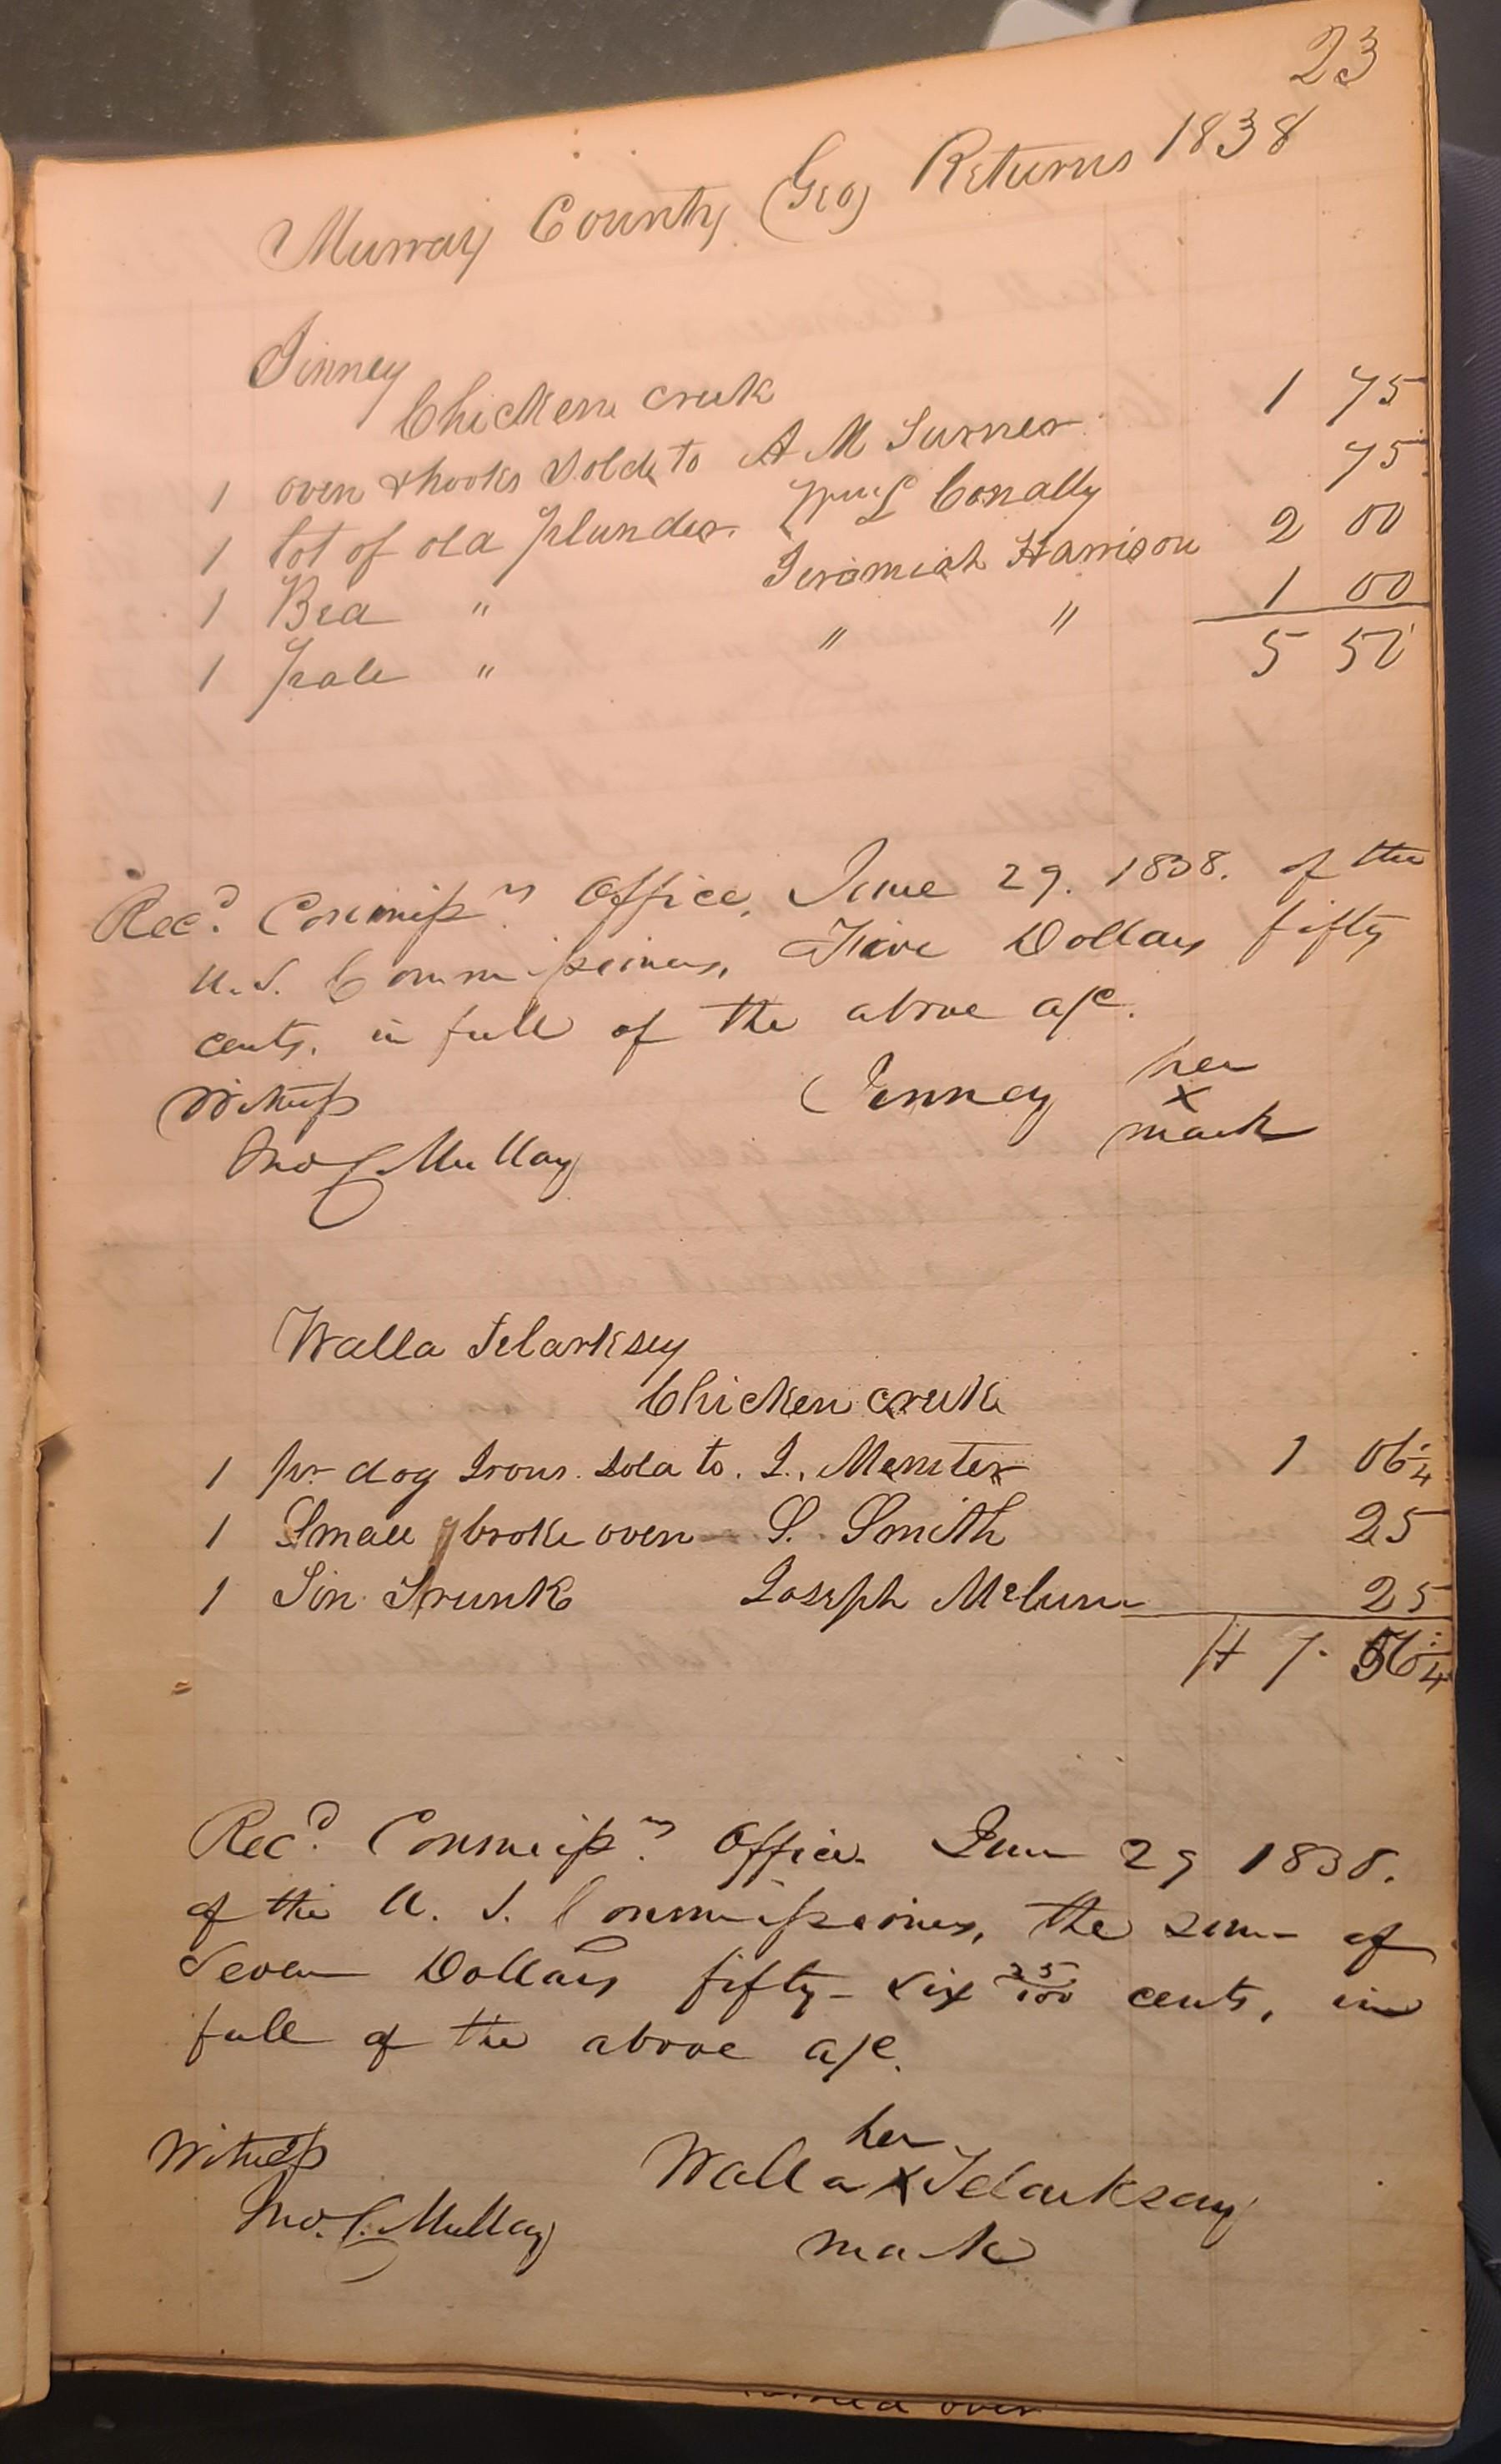 23
Murray County (Geo) Returns 1838
Jinney
Chicken creek
1 oven & hooks Sold to A M Turner 1 75
1 lot of old plunder. Wm L Conally 75
1 Bed " Jeremiah Harrison 2 00
1 pale " " " 1 00
5 50
Recd. Commissrs Office, June 29. 1838. of the
U.S. Commissioners, Five Dollars fifty
cents, in full of the above a/c.
Witness Jenney her
x
mark
Jno C Mullay
Walla Telarksey
Chicken creek
1 pr dog Irons. Sold to. 1 06 1/4
1 Small broke oven S. Smith 25
1 Tin Trunk Joseph 25
7. 56 1/4
Recd. Commissrs Office. June 29 1838.
of the U. S. Commissioners, the sum of
Seven Dollars fifty-six 25/100 cents, in
full of the above a/c.
Witness her
Walla x Telarksay
Jno. C. Mullay mark
over